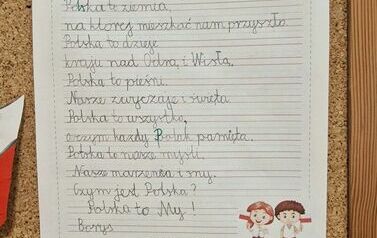 Polska to ziemia,
na której mieszkać nam przyszło.
Polska to dzieje
kraju nad Odrą i Wisłą.
Polska to pieśni.
Nasze zwyczaje i święta
Polska to wszystko,
o czym każdy Polak pamięta.
Polska to nasze myśli.
Nasze marzenia i my.
Czym jest Polska?
Polska to My!
Borys